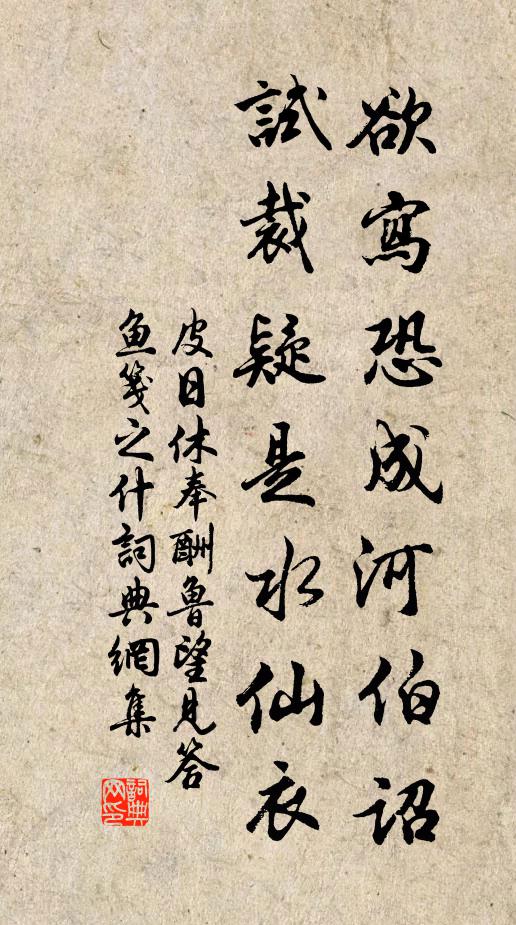 欲寫恐成河伯詔
試裁疑是水仙衣
皮日休奉酬魯望見答
魚箋之什詞典網集
詞典网印